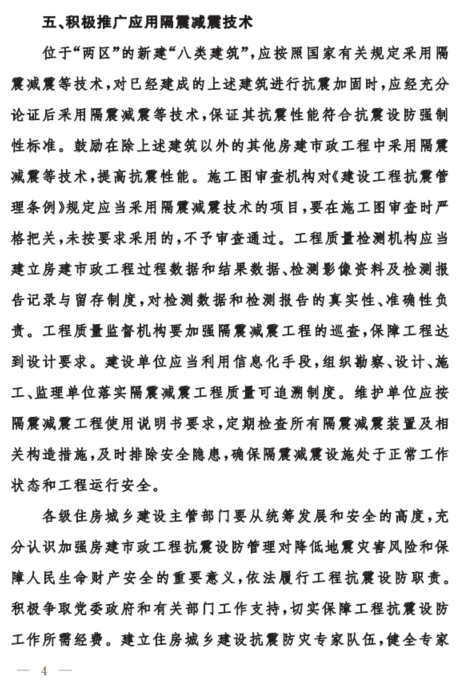 五、积极推广应用隔震减震技术
位于“两区”的新建“八类建筑”,应按照国家有关规定采用隔
震减震等技术,对已经建成的上述建筑进行抗震加固时,应经充分
论证后采用隔震减震等技术,保证其抗震性能符合抗震设防强制
性标准。鼓励在除上述建筑以外的其他房建市政工程中采用隔震
减震等技术,提高抗震性能。施工图审查机构对《建设工程抗震管
理条例》规定应当采用隔震减震技术的项目,要在施工图审查时严
格把关,未按要求采用的,不予审查通过。工程质量检测机构应当
建立房建市政工程过程数据和结果数据、检测影像资料及检测报
告记录与留存制度,对检测数据和检测报告的真实性、准确性负
责。工程质量监督机构要加强隔震减震工程的巡查,保障工程达
到设计要求。建设单位应当利用信息化手段,组织勘察、设计、施
工、监理单位落实隔震减震工程质量可追溯制度。维护单位应按
隔震减震工程使用说明书要求,定期检查所有隔震减震装置及相
关构造措施,及时排除安全隐患,确保隔震减震设施处于正常工作
状态和工程运行安全。
各级住房城乡建设主管部门要从统筹发展和安全的高度,充
分认识加强房建市政工程抗震设防管理对降低地震灾害风险和保
障人民生命财产安全的重要意义,依法履行工程抗震设防职责。
积极争取党委政府和有关部门工作支持,切实保障工程抗震设防
工作所需经费。建立住房城乡建设抗震防灾专家队伍,健全专家
— 4 —